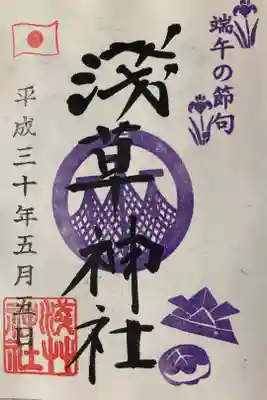 端午の節句
浅草神社
平成三十年五月五日
浅草
神社